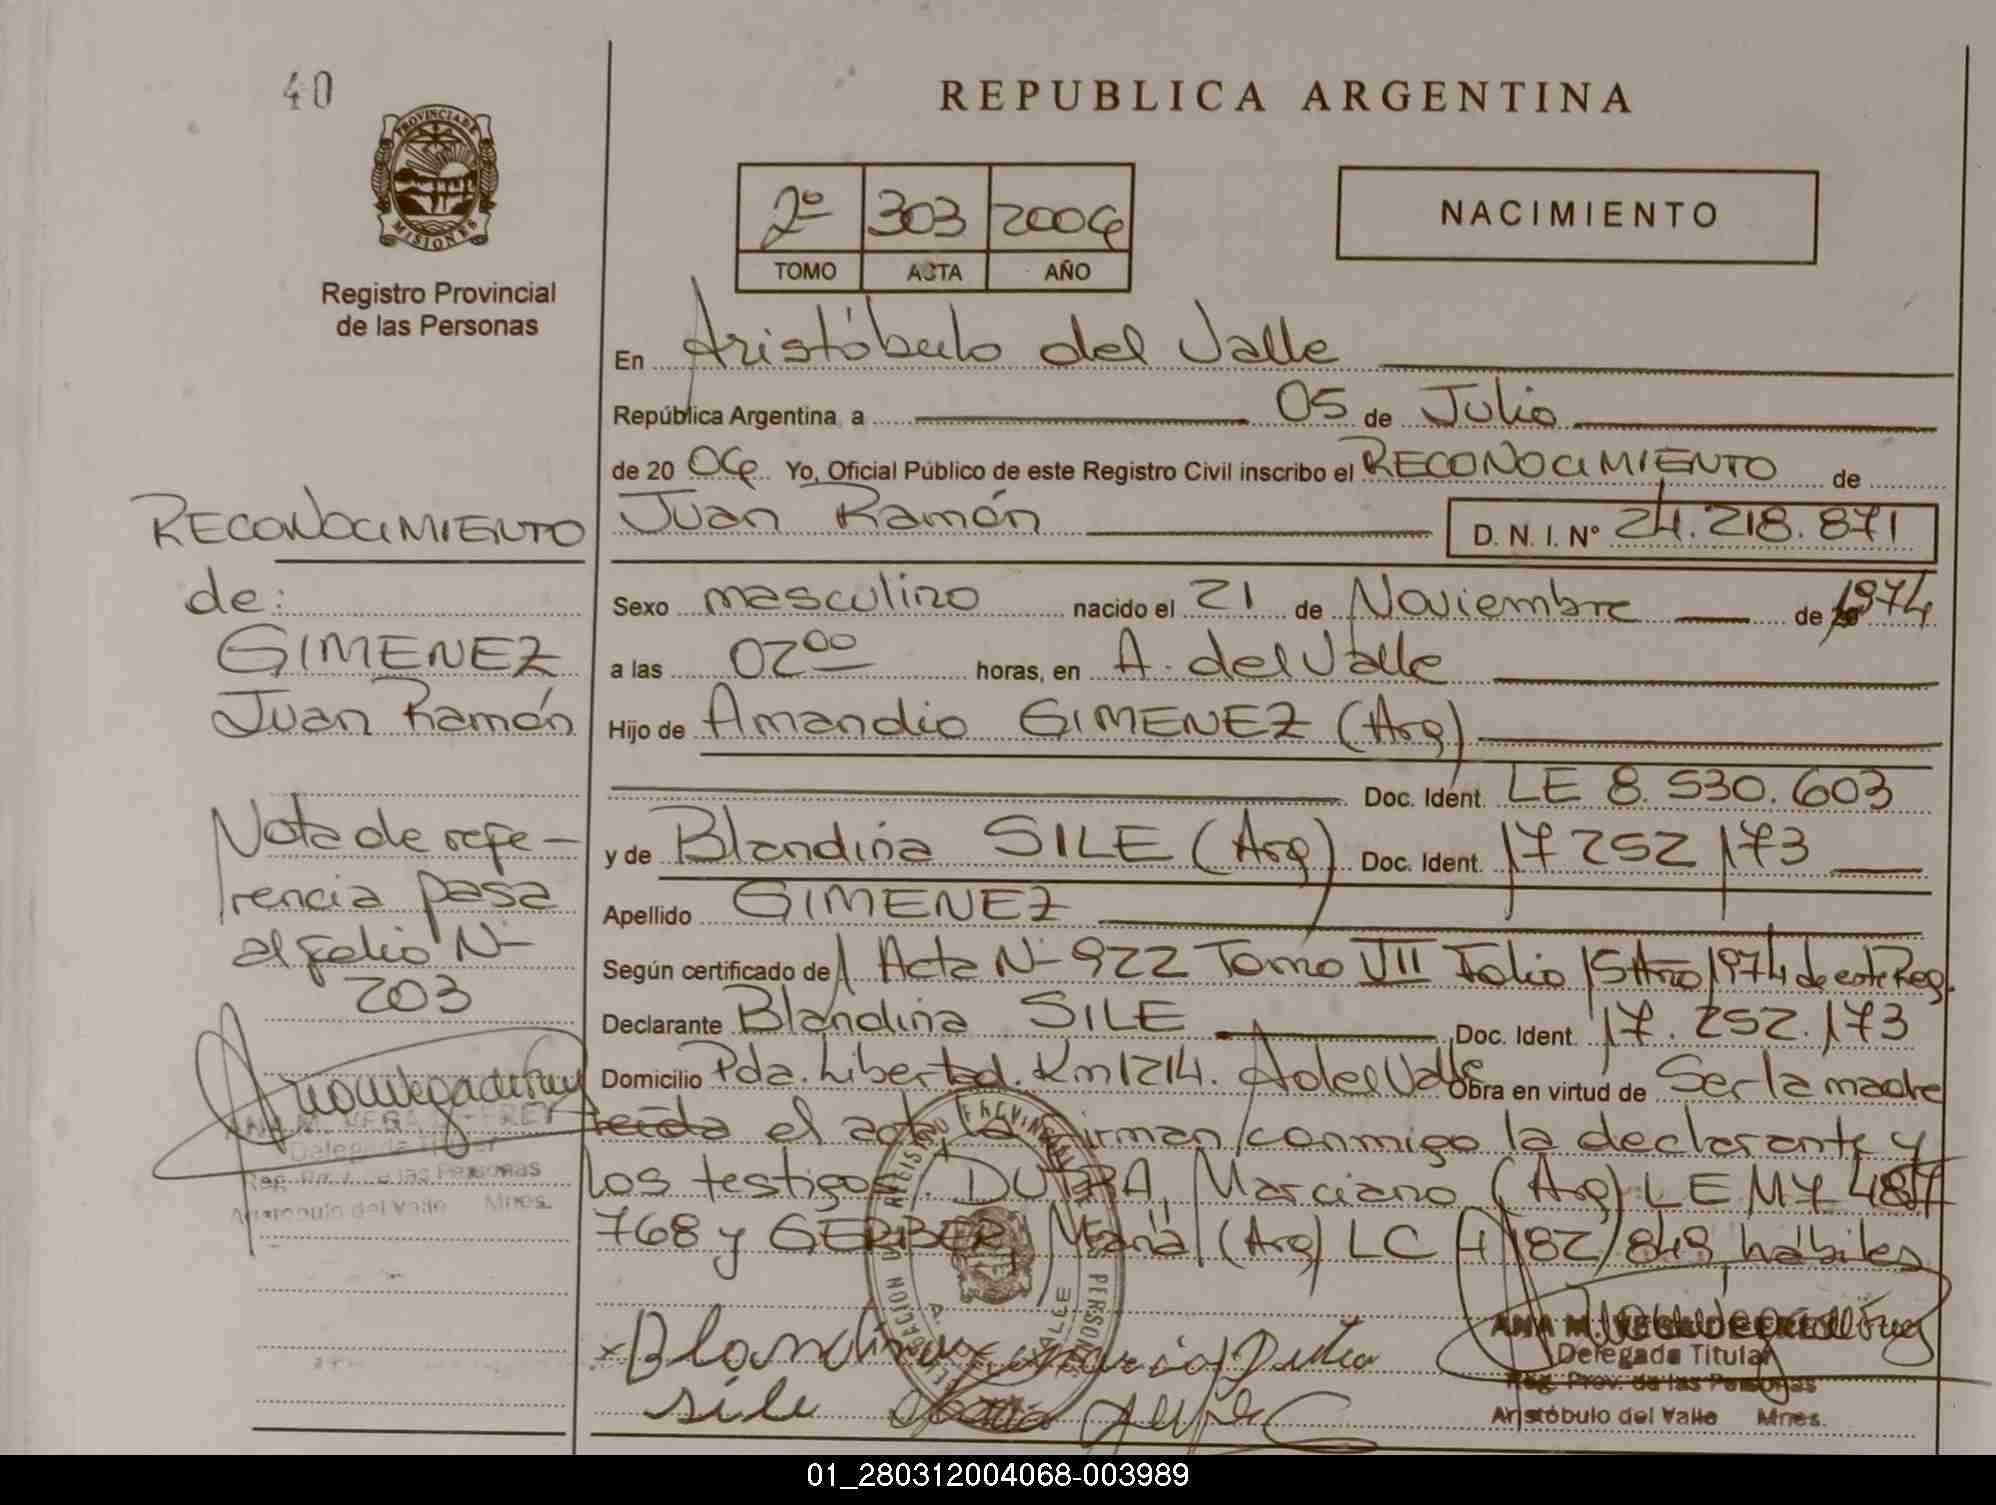 40
PROVINCIA DE
MISIONES
Registro Provincial
de las Personas
REPUBLICA ARGENTINA
2º 303 2004
TOMO ACTA AÑO
NACIMIENTO
En Aristóbulo del Valle
República Argentina, a 05 de Julio
de 20 04 Yo, Oficial Público de este Registro Civil inscribo el RECONOCIMIENTO de
Juan Ramón D. N. I. Nº 24.218.871
Sexo masculino nacido el 21 de Noviembre de 1974
a las 02⁰⁰ horas, en A. del Valle
Hijo de Amandio GIMENEZ (Arg)
Doc. Ident. LE 8.530.603
y de Blandina SILE (Arg) Doc. Ident. 17 252 173
Apellido GIMENEZ
Según certificado de Acta Nº 922 Tomo VII Folio 15 Año 1974 de este Reg.
Declarante Blandina SILE Doc. Ident. 17.252.173
Domicilio Pda. Libertad. Km 1214. A del Valle Obra en virtud de Ser la madre
Leída el acta, la firman conmigo la declarante y
los testigos: DUTRA, Marciano (Arg) LE MY 487
768 y GERBER, María (Arg) LC 4 182 848 hábiles
Blandina
sile
ANA M.
Delegada Titular
Reg. Prov. de las Personas
Aristóbulo del Valle Mnes.
RECONOCIMIENTO
de:
GIMENEZ
Juan Ramón
Nota de refe-
rencia pasa
al folio Nº
203
ANA M. VEGA
Delegada Titular
Reg. Prov. de las Personas
Aristóbulo del Valle Mnes.
01_280312004068-003989